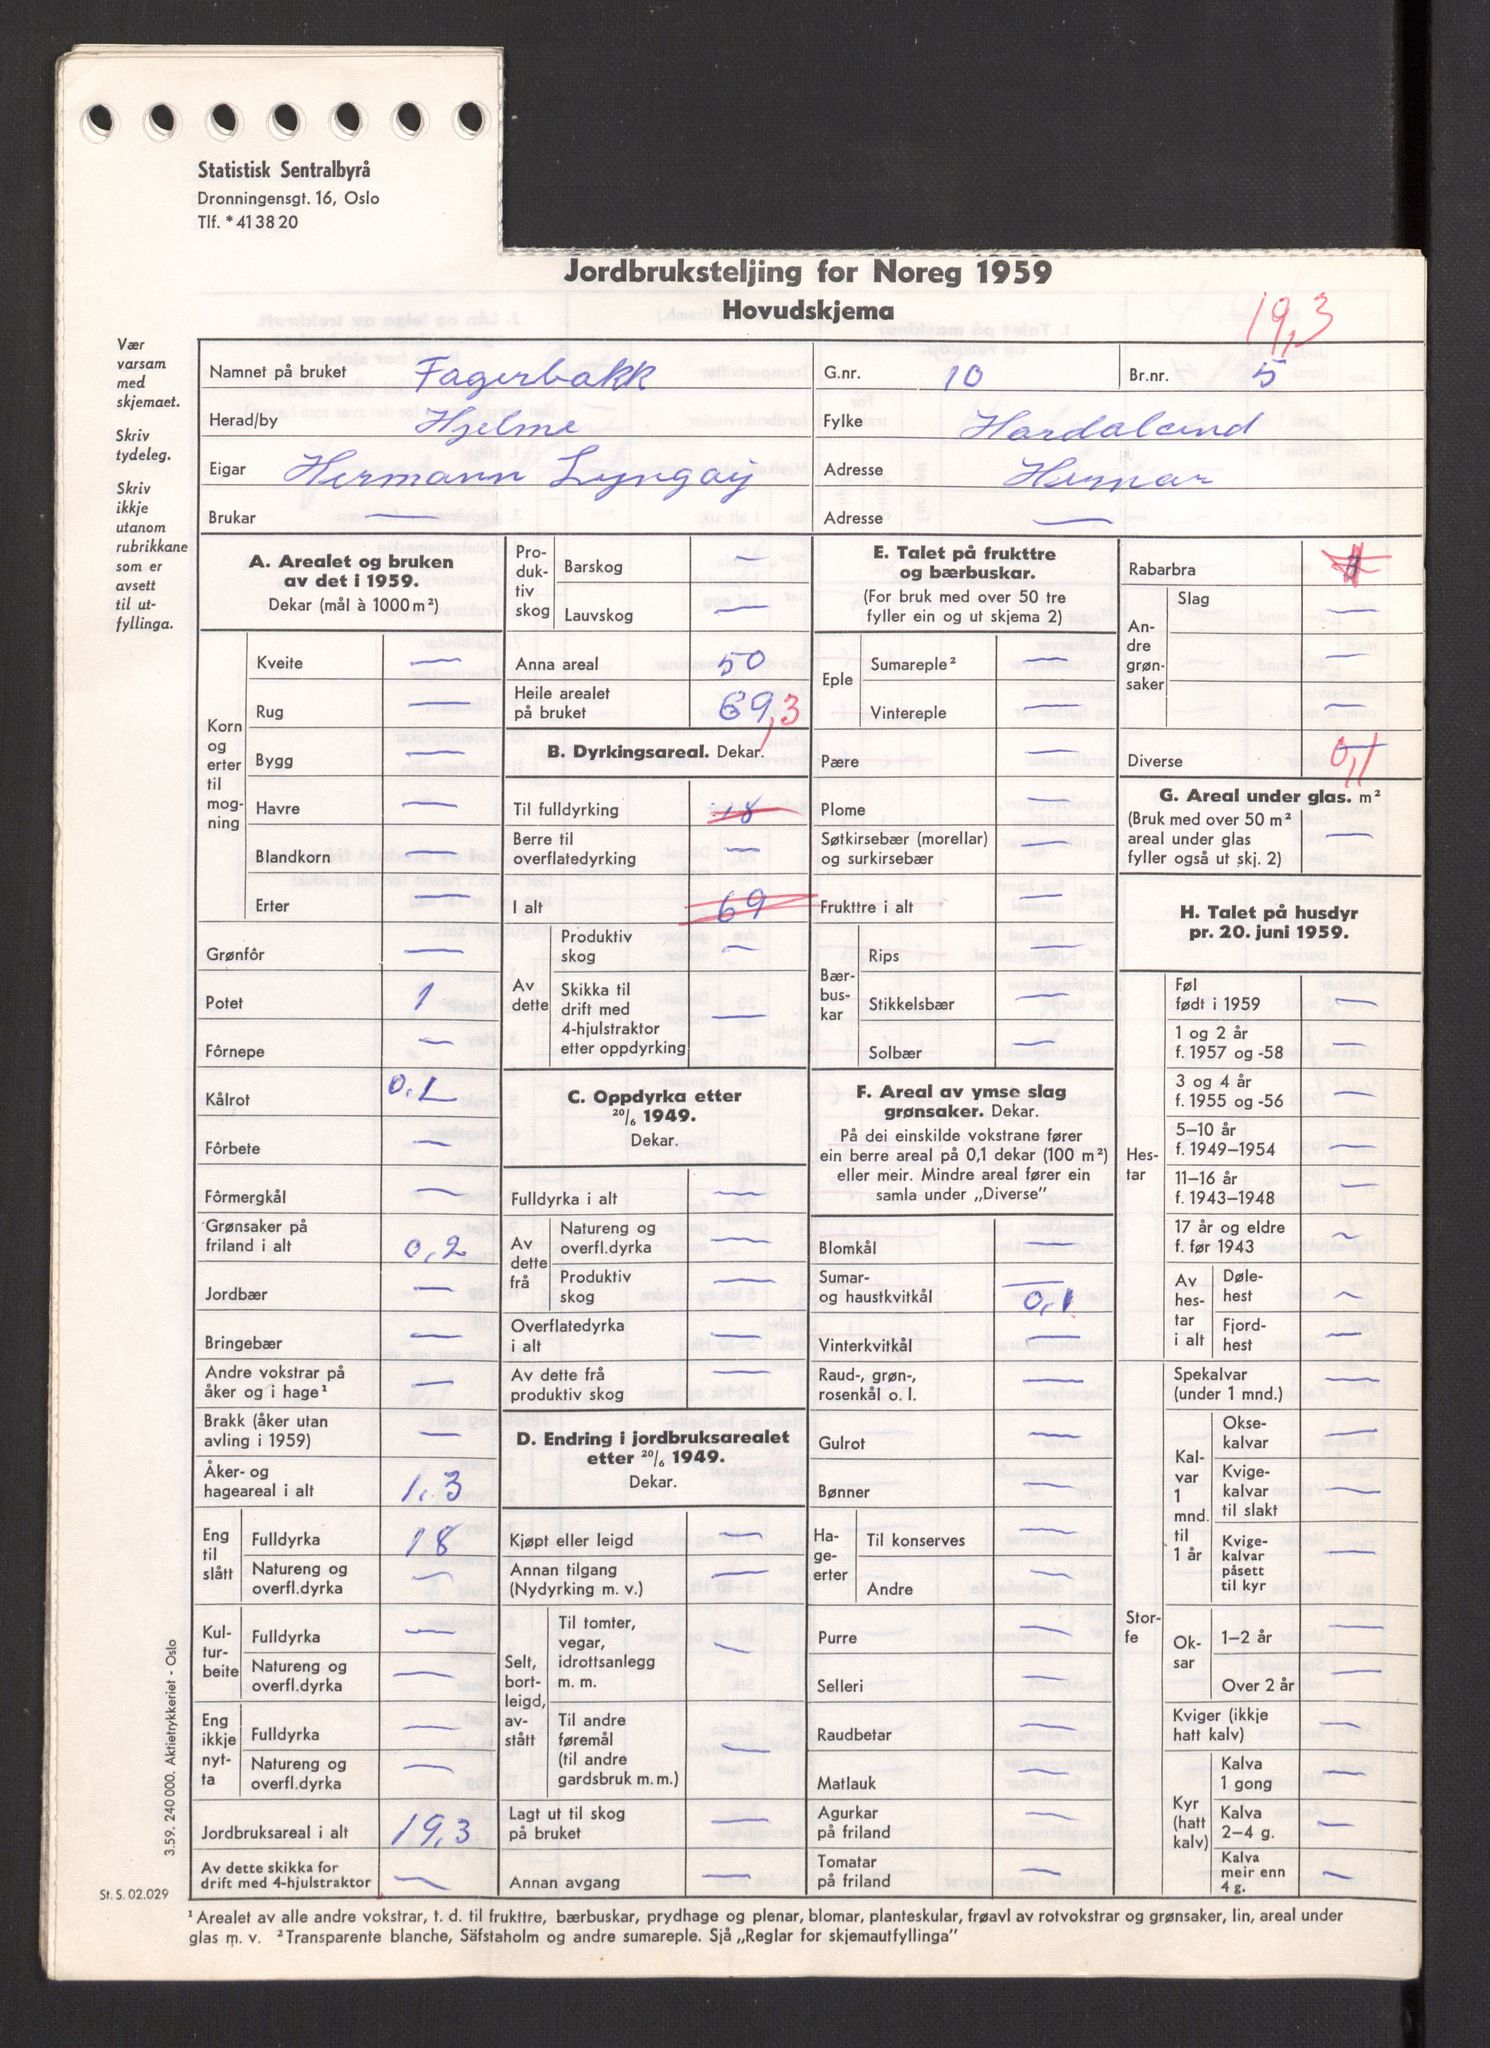 Statistisk Sentralbyrå
Dronningensgt. 16, Oslo
Tlf. *41 38 20
Jordbruksteljing for Noreg 1959
Hovudskjema
19,3
Vær
varsam
med
skjemaet.
Skriv
tydeleg.
Skriv
ikkje
utanom
rubrikkane
som er
avsett
til ut-
fyllinga.
Namnet på bruket Fagerbakk G.nr. 10 Br.nr. 5
Herad/by Hjelme Fylke Hordaland
Eigar Hermann Lyngøy Adresse Hernar
Brukar — Adresse —
A. Arealet og bruken
av det i 1959.
Dekar (mål à 1000 m²)
Korn
og
erter
til
mog-
ning
Kveite —
Rug —
Bygg —
Havre —
Blandkorn —
Erter —
Grønfôr —
Potet 1
Fôrnepe —
Kålrot 0,1
Fôrbete —
Fôrmergkål —
Grønsaker på
friland i alt 0,2
Jordbær —
Bringebær —
Andre vokstrar på
åker og i hage¹ —
Brakk (åker utan
avling i 1959) —
Åker- og
hageareal i alt 1,3
Eng
til
slått
Fulldyrka 18
Natureng og
overfl.dyrka —
Kul-
tur-
beite
Fulldyrka —
Natureng og
overfl.dyrka —
Eng
ikkje
nyt-
ta
Fulldyrka —
Natureng og
overfl.dyrka —
Jordbruksareal i alt 19,3
Av dette skikka for
drift med 4-hjulstraktor —
Pro-
duk-
tiv
skog
Barskog —
Lauvskog —
Anna areal 50
Heile arealet
på bruket 69,3
B. Dyrkingsareal. Dekar.
Til fulldyrking 18
Berre til
overflatedyrking —
I alt 69
Av
dette
Produktiv
skog —
Skikka til
drift med
4-hjulstraktor
etter oppdyrking —
C. Oppdyrka etter
20/6 1949.
Dekar.
Fulldyrka i alt —
Av
dette
frå
Natureng og
overfl.dyrka —
Produktiv
skog —
Overflatedyrka
i alt —
Av dette frå
produktiv skog —
D. Endring i jordbruksarealet
etter 20/6 1949.
Dekar.
Kjøpt eller leigd —
Annan tilgang
(Nydyrking m. v.) —
Selt,
bort-
leigd,
av-
stått
Til tomter,
vegar,
idrottsanlegg
m. m. —
Til andre
føremål
(til andre
gardsbruk m. m.) —
Lagt ut til skog
på bruket —
Annan avgang —
E. Talet på frukttre
og bærbuskar.
(For bruk med over 50 tre
fyller ein og ut skjema 2)
Eple
Sumareple² —
Vintereple —
Pære —
Plome —
Søtkirsebær (morellar)
og surkirsebær —
Frukttre i alt —
Bær-
bus-
kar
Rips —
Stikkelsbær —
Solbær —
F. Areal av ymse slag
grønsaker. Dekar.
På dei einskilde vokstrane fører
ein berre areal på 0,1 dekar (100 m²)
eller meir. Mindre areal fører ein
samla under „Diverse"
Blomkål —
Sumar-
og haustkvitkål 0,1
Vinterkvitkål —
Raud-, grøn-,
rosenkål o. l. —
Gulrot —
Bønner —
Ha-
ge-
erter
Til konserves —
Andre —
Purre —
Selleri —
Raudbetar —
Matlauk —
Agurkar
på friland —
Tomatar
på friland —
Rabarbra
An-
dre
grøn-
saker
Slag
—
—
—
Diverse 0,1
G. Areal under glas. m²
(Bruk med over 50 m²
areal under glas
fyller også ut skj. 2) —
H. Talet på husdyr
pr. 20. juni 1959.
Hes-
tar
Føl
født i 1959 —
1 og 2 år
f. 1957 og -58 —
3 og 4 år
f. 1955 og -56 —
5–10 år
f. 1949–1954 —
11–16 år
f. 1943–1948 —
17 år og eldre
f. før 1943 —
Av
hes-
tar
i alt
Døle-
hest —
Fjord-
hest —
Stor-
fe
Spekalvar
(under 1 mnd.) —
Kal-
var
1
mnd.
til
1 år
Okse-
kalvar —
Kvige-
kalvar
til slakt —
Kvige-
kalvar
påsett
til kyr —
Ok-
sar
1–2 år —
Over 2 år —
Kviger (ikkje
hatt kalv) —
Kyr
(hatt
kalv)
Kalva
1 gong —
Kalva
2–4 g. —
Kalva
meir enn
4 g. —
3.59. 240 000. Aktietrykkeriet - Oslo
St. S. 02.029
¹ Arealet av alle andre vokstrar, t. d. til frukttre, bærbuskar, prydhage og plenar, blomar, planteskular, frøavl av rotvokstrar og grønsaker, lin, areal under
glas m. v. ² Transparente blanche, Säfstaholm og andre sumareple. Sjå „Reglar for skjemautfyllinga"